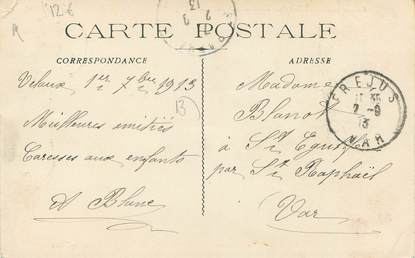 12-6
CARTE POSTALE
CORRESPONDANCE
ADRESSE
Velaux 1er 7bre 1913
Meilleures amitiés
Caresses aux enfants
A Blanc
Madame
Blanot
à St Egulf
par St Raphaël
Var
FREJUS
2-9
13
VAR